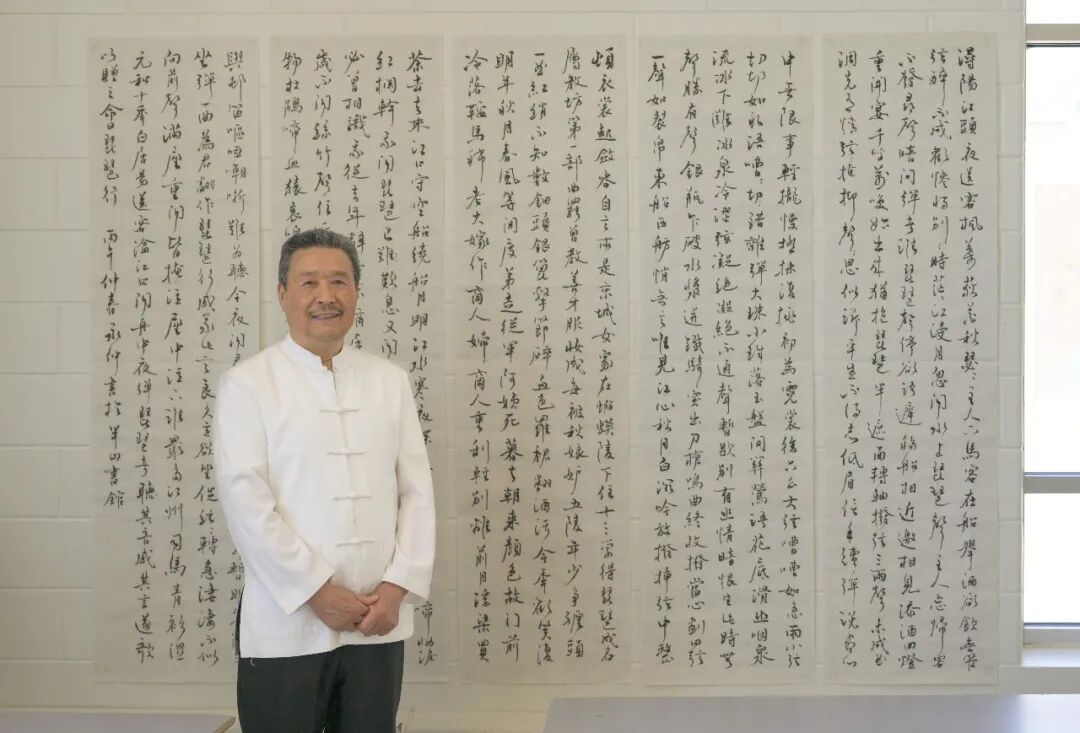 潯陽江頭夜送客楓葉荻花秋瑟瑟主人下馬客在船舉酒欲飲無管
弦醉不成歡慘將別別時茫茫江浸月忽聞水上琵琶聲主人忘歸客
不發尋聲暗問彈者誰琵琶聲停欲語遲移船相近邀相見添酒回燈
重開宴千呼萬喚始出來猶抱琵琶半遮面轉軸撥弦三兩聲未成曲
調先有情弦弦掩抑聲聲思似訴平生不得志低眉信手續續彈說盡心
中無限事輕攏慢撚抹復挑初為霓裳後六幺大弦嘈嘈如急雨小弦
切切如私語嘈嘈切切錯雜彈大珠小珠落玉盤間關鶯語花底滑幽咽泉
流冰下難冰泉冷澀弦凝絕凝絕不通聲暫歇別有幽情暗恨生此時無
聲勝有聲銀瓶乍破水漿迸鐵騎突出刀槍鳴曲終收撥當心畫四弦
一聲如裂帛東船西舫悄無言唯見江心秋月白沉吟放撥插弦中整
頓衣裳起斂容自言本是京城女家在蝦蟆陵下住十三學得琵琶成名
屬教坊第一部曲罷曾教善才服妝成每被秋娘妒五陵年少爭纏頭
一曲紅綃不知數鈿頭銀篦擊節碎血色羅裙翻酒污今年歡笑復
明年秋月春風等閒度弟走從軍阿姨死暮去朝來顏色故門前
冷落鞍馬稀老大嫁作商人婦商人重利輕別離前月浮梁買
茶去去來江口守空船繞船月明江水寒夜深 啼妝淚
紅闌干我聞琵琶已歎息又聞
必曾相識我從去年辭
歲不聞絲竹聲住
物杜鵑啼血猿哀
與村笛嘔啞嘲哳難為聽今夜聞君 暫明
坐彈一曲為君翻作琵琶行感我此言良久立卻坐促弦轉急淒淒不似
向前聲滿座重聞皆掩泣座中泣下誰最多江州司馬青衫濕
元和十年白居易送客湓江口聞舟中夜彈琵琶者聽其音感其言遂歌
以贈之命曰琵琶行 丙午仲春永仲書於半山書館